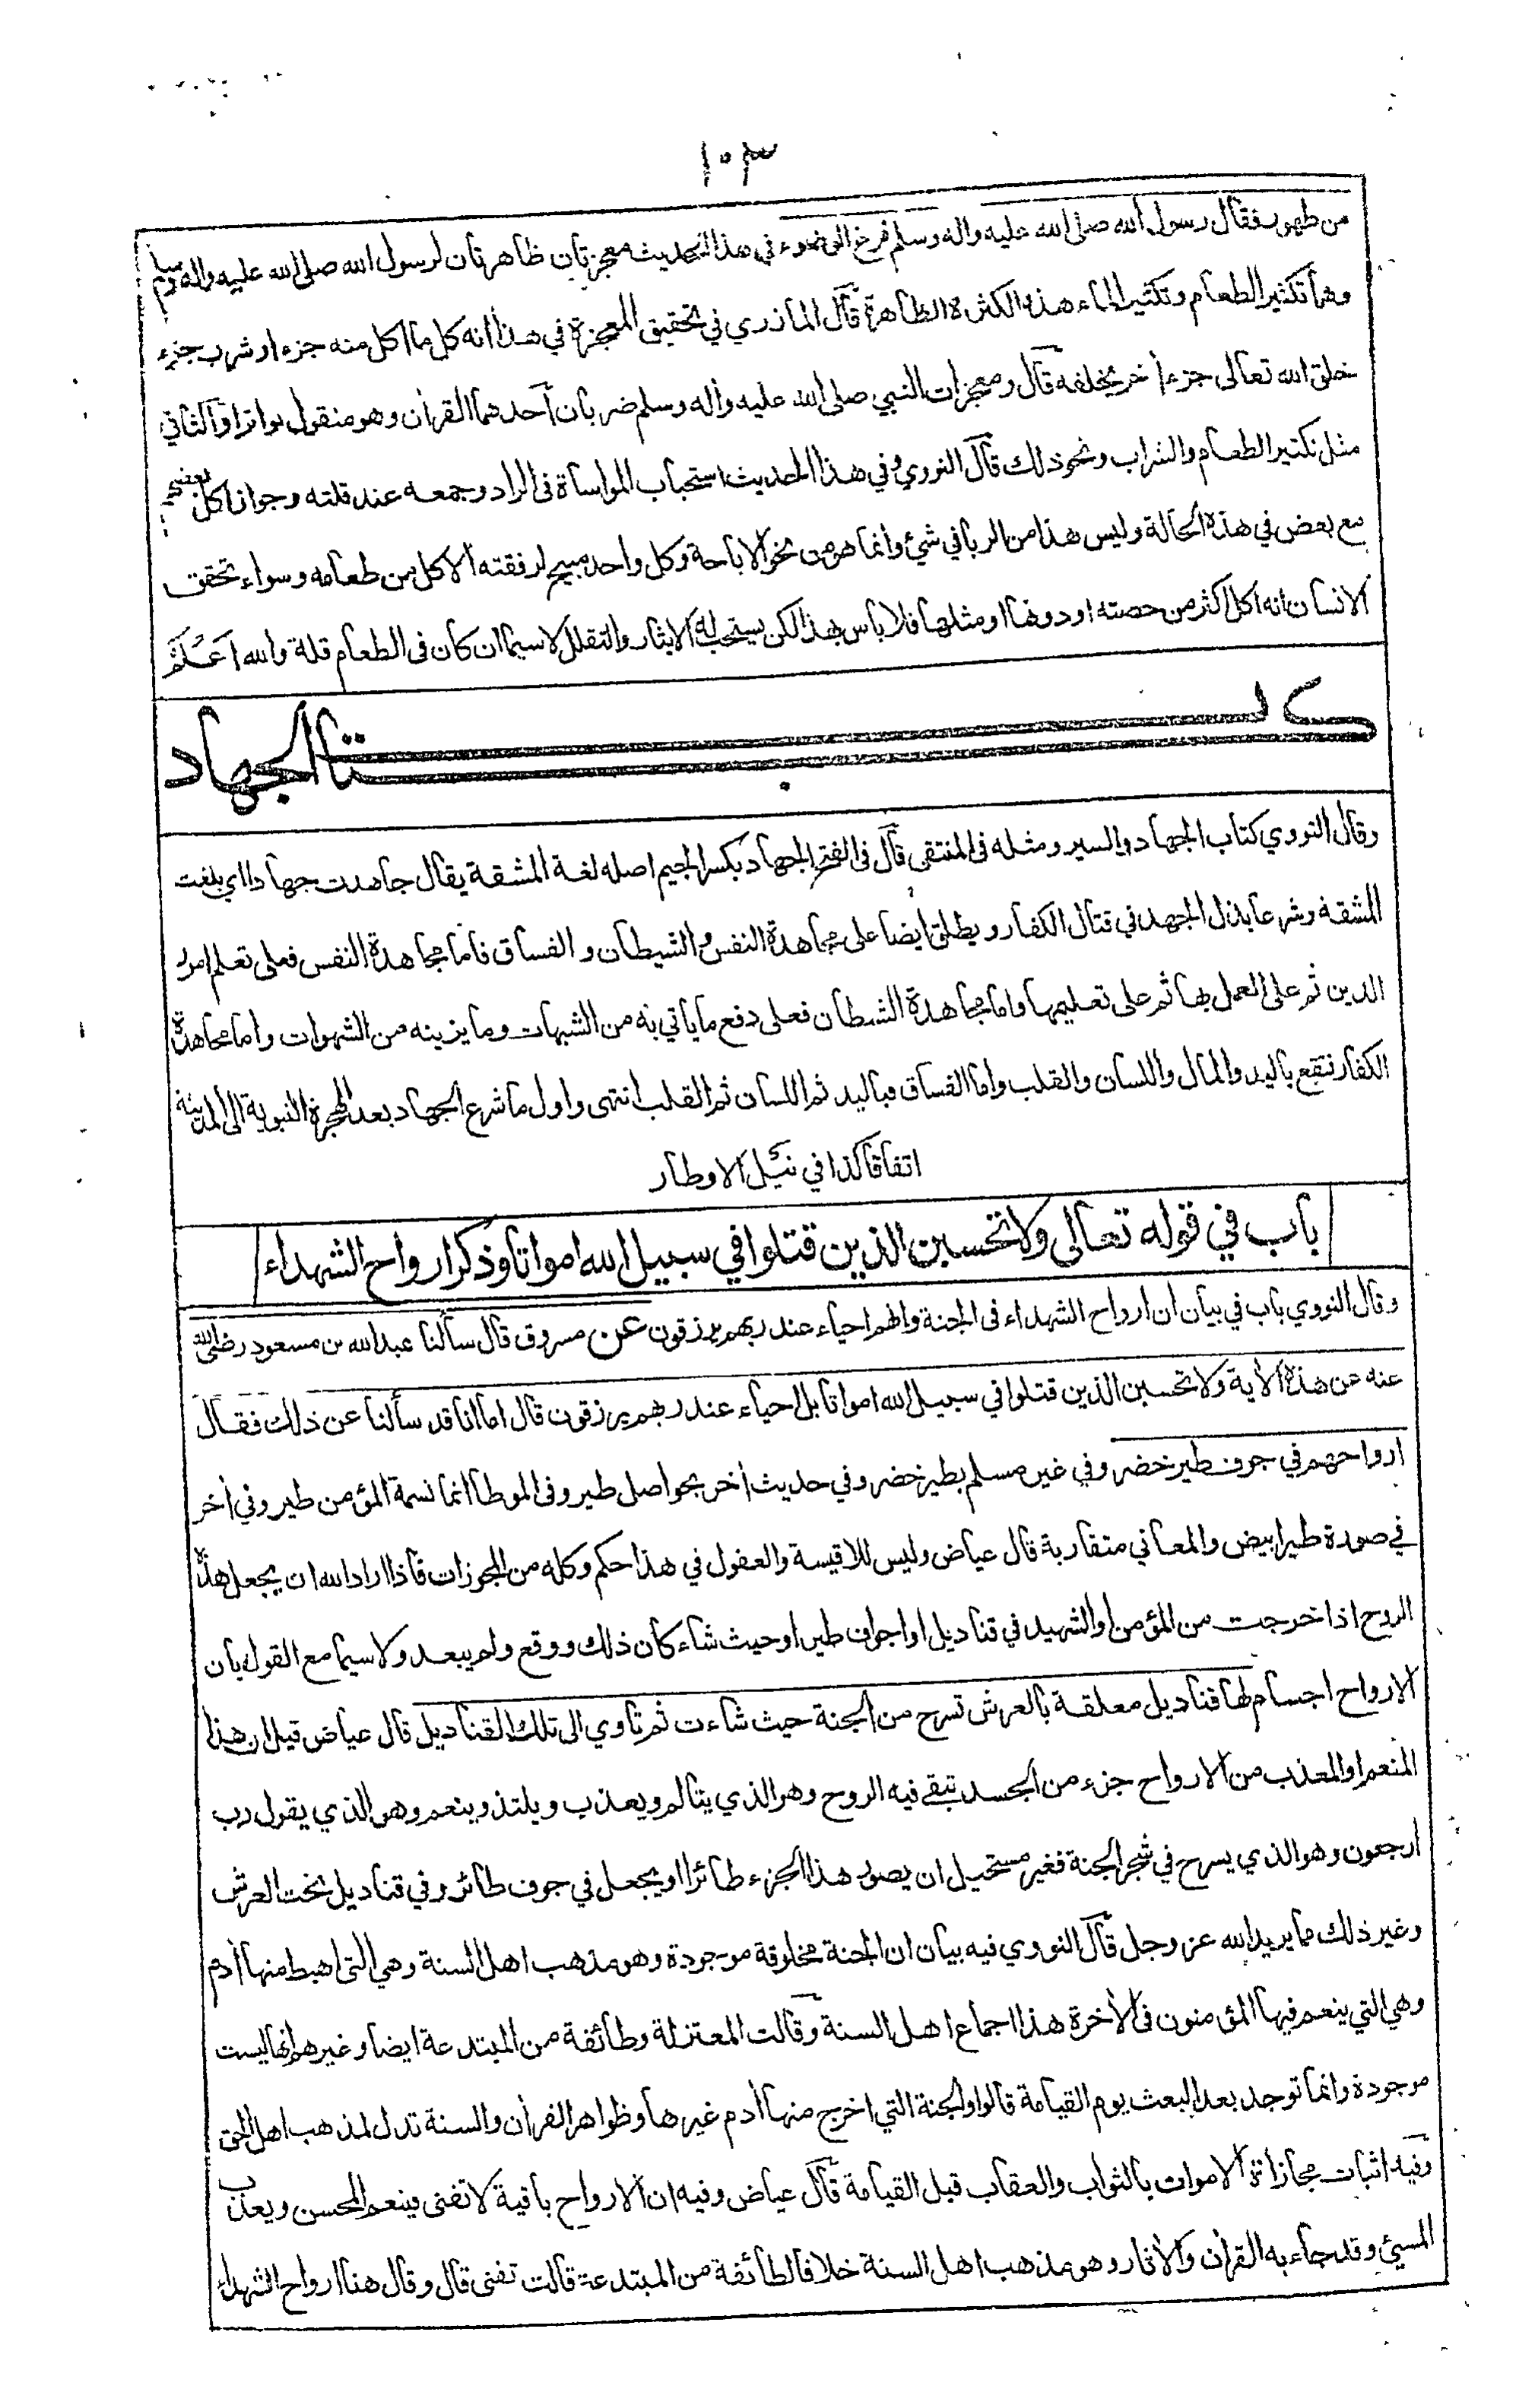 ١٠٣
من طهور فقال رسول الله صلى الله عليه واله وسلم فرغ الوضوء في هذا الحديث معجزتان ظاهرتان لرسول الله صلى الله عليه واله وسلم
وهما تكثير الطعام وتكثير الماء هذه الكثرة الظاهرة قال المازري في تحقيق المعجزة في هذا انه كل ما اكل منه جزء او شرب جزء
خلق الله تعالى جزءا أخر يخلفه قال ومعجزات النبي صلى الله عليه وأله وسلم ضربان أحدهما القرأن وهو منقول تواترا والثاني
مثل تكثير الطعام والشراب ونحو ذلك قال النووي وفي هذا الحديث استحباب المواساة فى الزاد وجمعه عند قلته وجواز اكل بعضهم
مع بعض في هذه الحالة وليس هذا من الربا في شيء وانما هو من نحو الاباحة وكل واحد مبيح لرفقته الاكل من طعامه وسواء تحقق
الانسان انه اكل اكثر من حصته او دونها او مثلها فلا باس بهذا لكن يستحب له الايثار والتقلل لاسيما ان كان فى الطعام قلة والله اعلم
كتاب الجهاد
وقال النووي كتاب الجهاد والسير ومثله فى المنتقى قال فى الفتح الجهاد بكسر الجيم اصله لغة المشقة يقال جاهدت جهادا اي بلغت
المشقة وشرعا بذل الجهد في قتال الكفار ويطلق ايضا على مجاهدة النفس والشيطان والفساق فاما مجاهدة النفس فعلى تعلم امور
الدين ثم على العمل بها ثم على تعليمها واما مجاهدة الشيطان فعلى دفع ما ياتي به من الشبهات وما يزينه من الشهوات واما مجاهدة
الكفار فتقع باليد والمال واللسان والقلب واما الفساق فباليد ثم اللسان ثم القلب انتهى واول ما شرع الجهاد بعد الهجرة النبوية الى المدينة
اتفاقا كذا في نيل الاوطار
باب في قوله تعالى ولا تحسبن الذين قتلوا في سبيل الله امواتا وذكر ارواح الشهداء
وقال النووي باب في بيان ان ارواح الشهداء فى الجنة وانهم احياء عند ربهم يرزقون عن مسروق قال سألنا عبد الله بن مسعود رضي الله
عنه عن هذه الأية ولا تحسبن الذين قتلوا في سبيل الله امواتا بل احياء عند ربهم يرزقون قال اما انا قد سألنا عن ذلك فقال
ارواحهم في جوف طير خضر وفي غير مسلم بطير خضر وفي حديث أخر بحواصل طير وفى الموطأ انما نسمة المؤمن طير وفي أخر
في صورة طير ابيض والمعاني متقاربة قال عياض وليس للاقيسة والعقول في هذا حكم وكله من المجوزات فاذا اراد الله ان يجعل هذه
الروح اذا خرجت من المؤمن او الشهيد في قناديل او اجواف طير او حيث شاء كان ذلك ووقع ولم يبعد ولا سيما مع القول بان
الارواح اجسام لها قناديل معلقة بالعرش تسرح من الجنة حيث شاءت ثم تاوي الى تلك القناديل قال عياض قيل ان هذا
المنعم او المعذب من الارواح جزء من الجسد تبقى فيه الروح وهو الذي يتالم ويعذب ويلتذ وينعم وهو الذي يقول رب
ارجعون وهو الذي يسرح في شجر الجنة فغير مستحيل ان يصور هذا الجزء طائرا او يجعل في جوف طائر وفي قناديل تحت العرش
وغير ذلك مما يريد الله عز وجل قال النووي فيه بيان ان الجنة مخلوقة موجودة وهو مذهب اهل السنة وهي التي اهبط منها أدم
وهي التي ينعم فيها المؤمنون فى الأخرة هذا اجماع اهل السنة وقالت المعتزلة وطائفة من المبتدعة ايضا وغيرهم انها ليست
موجودة وانما توجد بعد البعث يوم القيامة قالوا والجنة التي اخرج منها أدم غيرها وظواهر القرأن والسنة تدل لمذهب اهل الحق
وفيه اثبات مجازاة الاموات بالثواب والعقاب قبل القيامة قال عياض وفيه ان الارواح باقية لا تفنى فينعم المحسن ويعذب
المسيئ وقد جاء به القرأن والأثار وهو مذهب اهل السنة خلافا لطائفة من المبتدعة قالت تفنى قال وقال هنا ارواح الشهداء